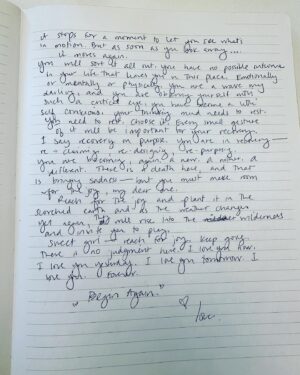 it stops for a moment to let you see what's
in motion. But as soon as you look away....
it moves again.
You will sort it all out. You have no possible outcome
in your life that leaves you in this place. Emotionally
or mentally or physically. You are a wave my
darling, and you are observing yourself with
such a critical eye, you have become a bit
self conscious. Your thinking mind needs to rest.
You need to rest. Choose it. Every small gesture
of it will be important for your recovery.
I say recovery on purpose. You are in recovery
re-claiming re-designing re-purposing
You are becoming, again, a new, a more, a
different. There is death here, and that
is bringing sadness — but you must make room
for the joy, my dear one.
Reach for the joy and plant it in the
scorched earth and as the weather changes
yet again, it will rise into the wilderness
and invite you to play.
Sweet girl — reach for joy. Keep going.
There is no judgment here. I love you now.
I love you yesterday. I love you tomorrow. I
love you. Forever.
"Begin Again."
Love.